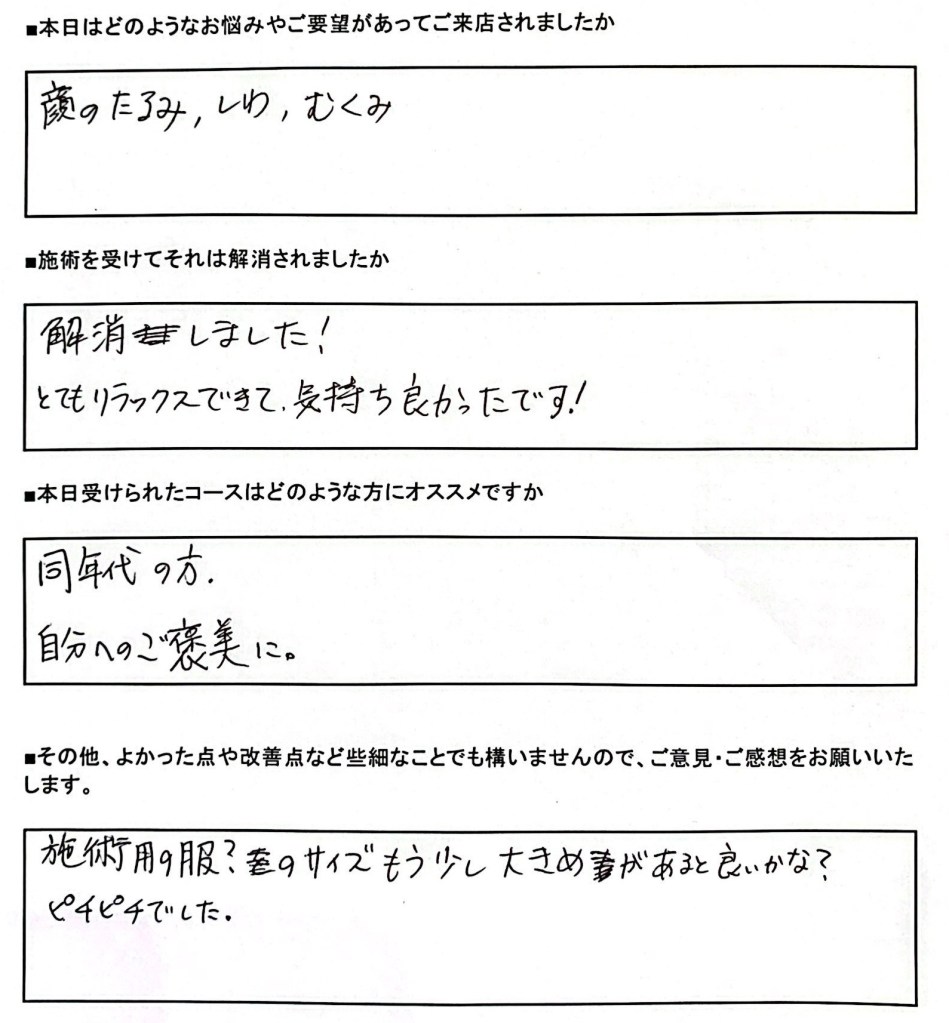 ■本日はどのようなお悩みやご要望があってご来店されましたか
顔のたるみ,しわ,むくみ
■施術を受けてそれは解消されましたか
解消しました!
とてもリラックスできて、気持ち良かったです!
■本日受けられたコースはどのような方にオススメですか
同年代の方.
自分へのご褒美に。
■その他、よかった点や改善点など些細なことでも構いませんので、ご意見・ご感想をお願いいた
します。
施術用の服?のサイズもう少し大きめがあると良いかな?
ピチピチでした.